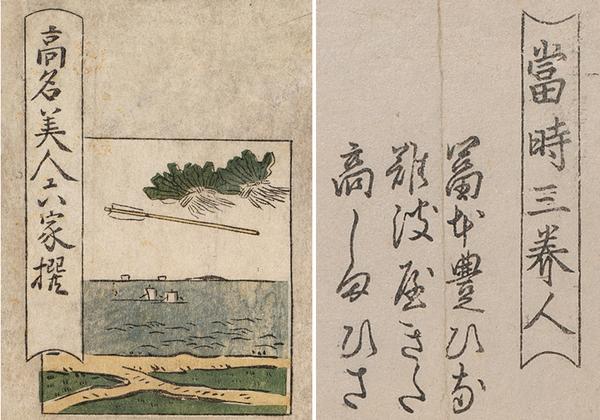 高名美人六家撰
當時三美人
冨本豊ひな
難波屋きた
高しまひさ